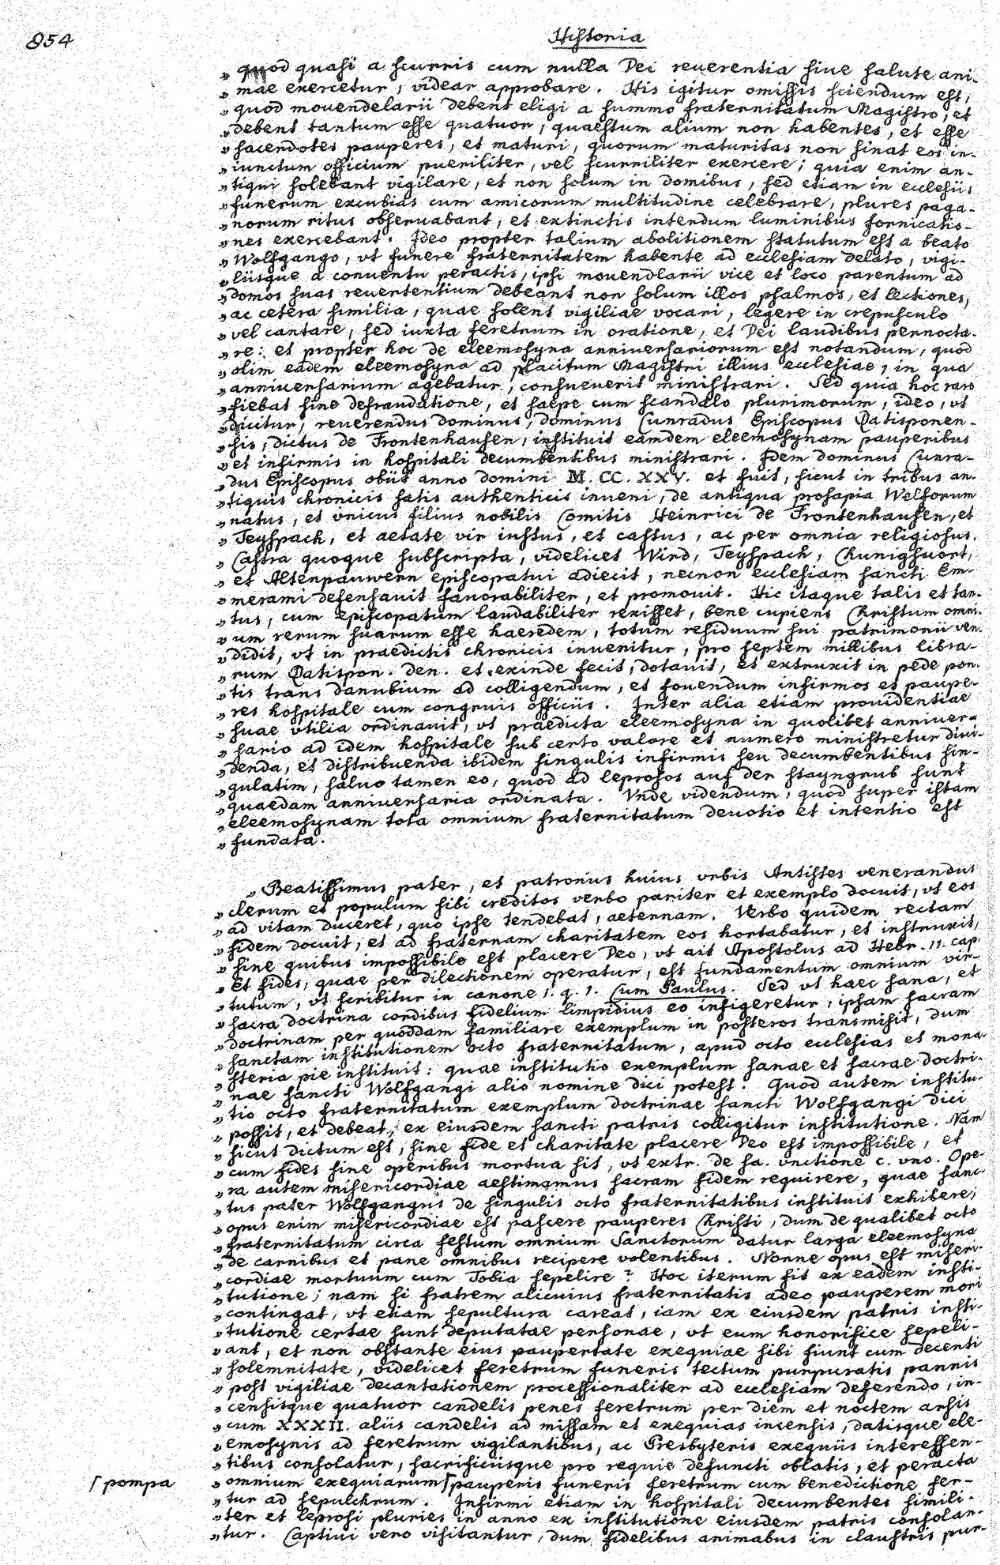 854
Historia
„ quod quasi a scurris cum nulla Dei reuerentia siue salute ani-
„ mae exercetur, videar approbare. His igitur omissis sciendum est,
„ quod mouendelarii debent eligi a summo fraternitatum Magistro, et
„ debent tantum esse quatuor, quaestum alium non habentes, et esse
„ sacerdotes pauperes, et maturi, quorum maturitas non sinat eos in-
„ iunctum officium pueriliter, vel scurriliter exercere; quia enim an-
„ tiqui solebant vigilare, et non solum in domibus, sed etiam in ecclesiis
„ funerum excubias cum amicorum multitudine celebrare, plures paga-
„ norum ritus obseruabant, et extinctis interdum luminibus fornicatio-
„ nes exercebant. Ideo propter talium abolitionem statutum est a beato
„ Wolfgango, vt funere fraternitatem habente ad ecclesiam delato, vigi-
„ liisque a conuentu peractis, ipsi mouendlarii vice et loco parentum ad
„ domos suas reuertentium debeant non solum illos psalmos, et lectiones,
„ ac cetera similia, quae solent vigiliae vocari, legere in crepusculo
„ vel cantare, sed iuxta feretrum in oratione, et Dei laudibus pernocta-
„ re: et propter hoc de eleemosyna anniuersariorum est notandum, quod
„ olim eadem eleemosyna ad placitum Magistri illius ecclesiae, in qua
„ anniuersarium agebatur, consueuerit ministrari. Sed quia hoc raro
„ fiebat sine defraudatione, et saepe cum scandalo plurimorum, ideo, vt
„ dicitur, reuerendus dominus, dominus Cunradus Episcopus Ratisponen-
„ sis, dictus de Frontenhausen, instituit eamdem eleemosynam pauperibus
„ et infirmis in hospitali decumbentibus ministrari. Idem dominus Cunra-
„ dus Episcopus obiit anno domini M. CC. XXV. et fuit, sicut in tribus an-
„ tiquis chronicis satis authenticis inueni, de antiqua prosapia Welforum
„ natus, et vnicus filius nobilis Comitis Heinrici de Frontenhausen, et
„ Teyspach, et aetate vir iustus, et castus, ac per omnia religiosus.
„ Castra quoque subscripta, videlicet Wird, Teyspach, Chunigswort,
„ et Altenpauwern episcopatui adiecit, necnon ecclesiam sancti Em-
„ merami defensauit fauorabiliter, et promouit. Hic itaque talis et tan-
„ tus, cum episcopatum laudabiliter rexisset, bene cupiens Christum omni-
„ um rerum suarum esse haeredem, totum residuum sui patrimonii ven-
„ didit, vt in praedictis chronicis inuenitur, pro septem millibus libra-
„ rum Ratispon. den. et exinde fecit, dotauit, et extruxit in pede pon-
„ tis trans danubium ad colligendum, et fouendum infirmos et paupe-
„ res hospitale cum congruis officiis. Inter alia etiam prouidentiae
„ suae vtilia ordinauit, vt praedicta eleemosyna in quolibet anniuer-
„ sario ad idem hospitale sub certo valore et numero ministretur diui-
„ denda, et distribuenda ibidem singulis infirmis seu decumbentibus sin-
„ gulatim, saluo tamen eo, quod ad leprosos auf der stayngrub sunt
„ quaedam anniuersaria ordinata. Vnde videndum, quod super istam
„ eleemosynam tota omnium fraternitatum deuotio et intentio est
„ fundata.
„ Beatissimus pater, et patronus huius vrbis Antistes venerandus
„ clerum et populum sibi creditos verbo pariter et exemplo docuit, vt eos
„ ad vitam duceret, quo ipse tendebat, aeternam. Verbo quidem rectam
„ fidem docuit, et ad fraternam charitatem eos hortabatur, et instruxit,
„ sine quibus impossibile est placere Deo, vt ait Apostolus ad Hebr. 11. cap.
„ Et fides, quae per dilectionem operatur, est fundamentum omnium vir-
„ tutum, vt scribitur in canone 1. q. 1. Cum Paulus. Sed vt haec sana, et
„ sacra doctrina cordibus fidelium limpidius eo infigeretur, ipsam sacram
„ doctrinam per quoddam familiare exemplum in posteros transmisit, dum
„ sanctam institutionem octo fraternitatum, apud octo ecclesias et mona-
„ steria pie instituit: quae institutio exemplum sanae et sacrae doctri-
„ nae sancti Wolfgangi alio nomine dici potest. Quod autem institu-
„ tio octo fraternitatum exemplum doctrinae sancti Wolfgangi dici
„ possit, et debeat, ex eiusdem sancti patris colligitur institutione. Nam
„ sicut dictum est, sine fide et charitate placere Deo est impossibile, et
„ cum fides sine operibus mortua sit, vt extr. de sa. vnctione c. vno. Ope-
„ ra autem misericordiae aestimamus sacram fidem requirere, quae sanc-
„ tus pater Wolfgangus de singulis octo fraternitatibus instituit exhibere;
„ opus enim misericordiae est pascere pauperes Christi, dum de qualibet octo
„ fraternitatum circa festum omnium Sanctorum datur larga eleemosyna
„ de carnibus et pane omnibus recipere volentibus. Nonne opus est miseri-
„ cordiae mortuum cum Tobia sepelire? Hoc iterum fit ex eadem insti-
„ tutione; nam si fratrem alicuius fraternitatis adeo pauperem mori
„ contingat, vt etiam sepultura careat, iam ex eiusdem patris insti-
„ tutione certae sunt deputatae personae, vt eum honorifice sepeli-
„ ant, et non obstante eius paupertate exequiae sibi fiunt cum decenti
„ solemnitate, videlicet feretrum funeris tectum purpuratis pannis
„ post vigiliae decantationem processionaliter ad ecclesiam deferendo, in-
„ censisque quatuor candelis penes feretrum per diem et noctem arsis
„ cum XXXII. aliis candelis ad missam et exequias incensis, datisque ele-
„ emosynis ad feretrum vigilantibus, ac Presbyteris exequiis interessen-
„ tibus consolatur, sacrificiisque pro requie defuncti oblatis, et peracta
„ omnium exequiarum ⌈ pauperis funeris feretrum cum benedictione fer-
⌈ pompa
„ tur ad sepulchrum. Infirmi etiam in hospitali decumbentes simili-
„ ter et leprosi pluries in anno ex institutione eiusdem patris consolan-
„ tur. Captiui vero visitantur, dum fidelibus animabus in claustris pur-